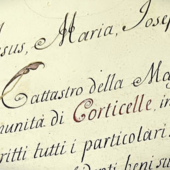 sus, Maria, Josep
Cattastro della Ma
munità di Corticelle, in
ritti tutti i particolari
beni su